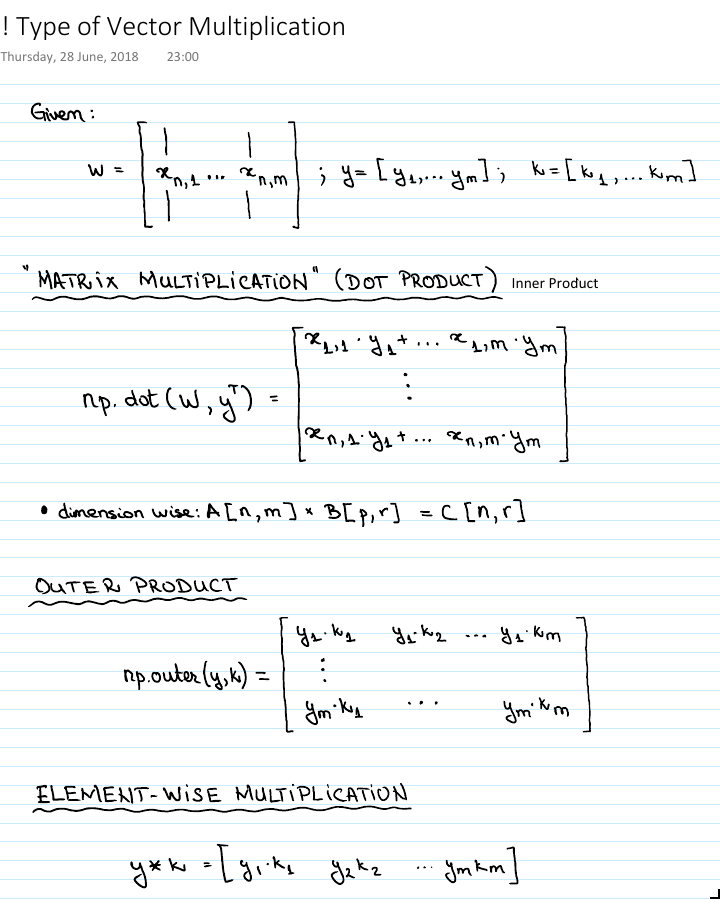 ! Type of Vector Multiplication
Thursday, 28 June, 2018 23:00
Given:
W = [ x_{n,1} ... x_{n,m} ] ; y = [y_1, ... y_m] ; k = [k_1, ... k_m]
"MATRiX MULTiPLiCATiON" (DOT PRODUCT) Inner Product
x_{1,1} · y_1 + ... x_{1,m} · y_m
np.dot(W, y^T) = ⋮
x_{n,1} · y_1 + ... x_{n,m} · y_m
• dimension wise: A[n,m] × B[p,r] = C[n,r]
OUTER PRODUCT
y_1 · k_1 y_1 · k_2 ... y_1 · k_m
np.outer(y,k) = ⋮
y_m · k_1 ... y_m · k_m
ELEMENT-WiSE MULTiPLiCATiON
y * k = [y_1 · k_1 y_2 k_2 ... y_m k_m]